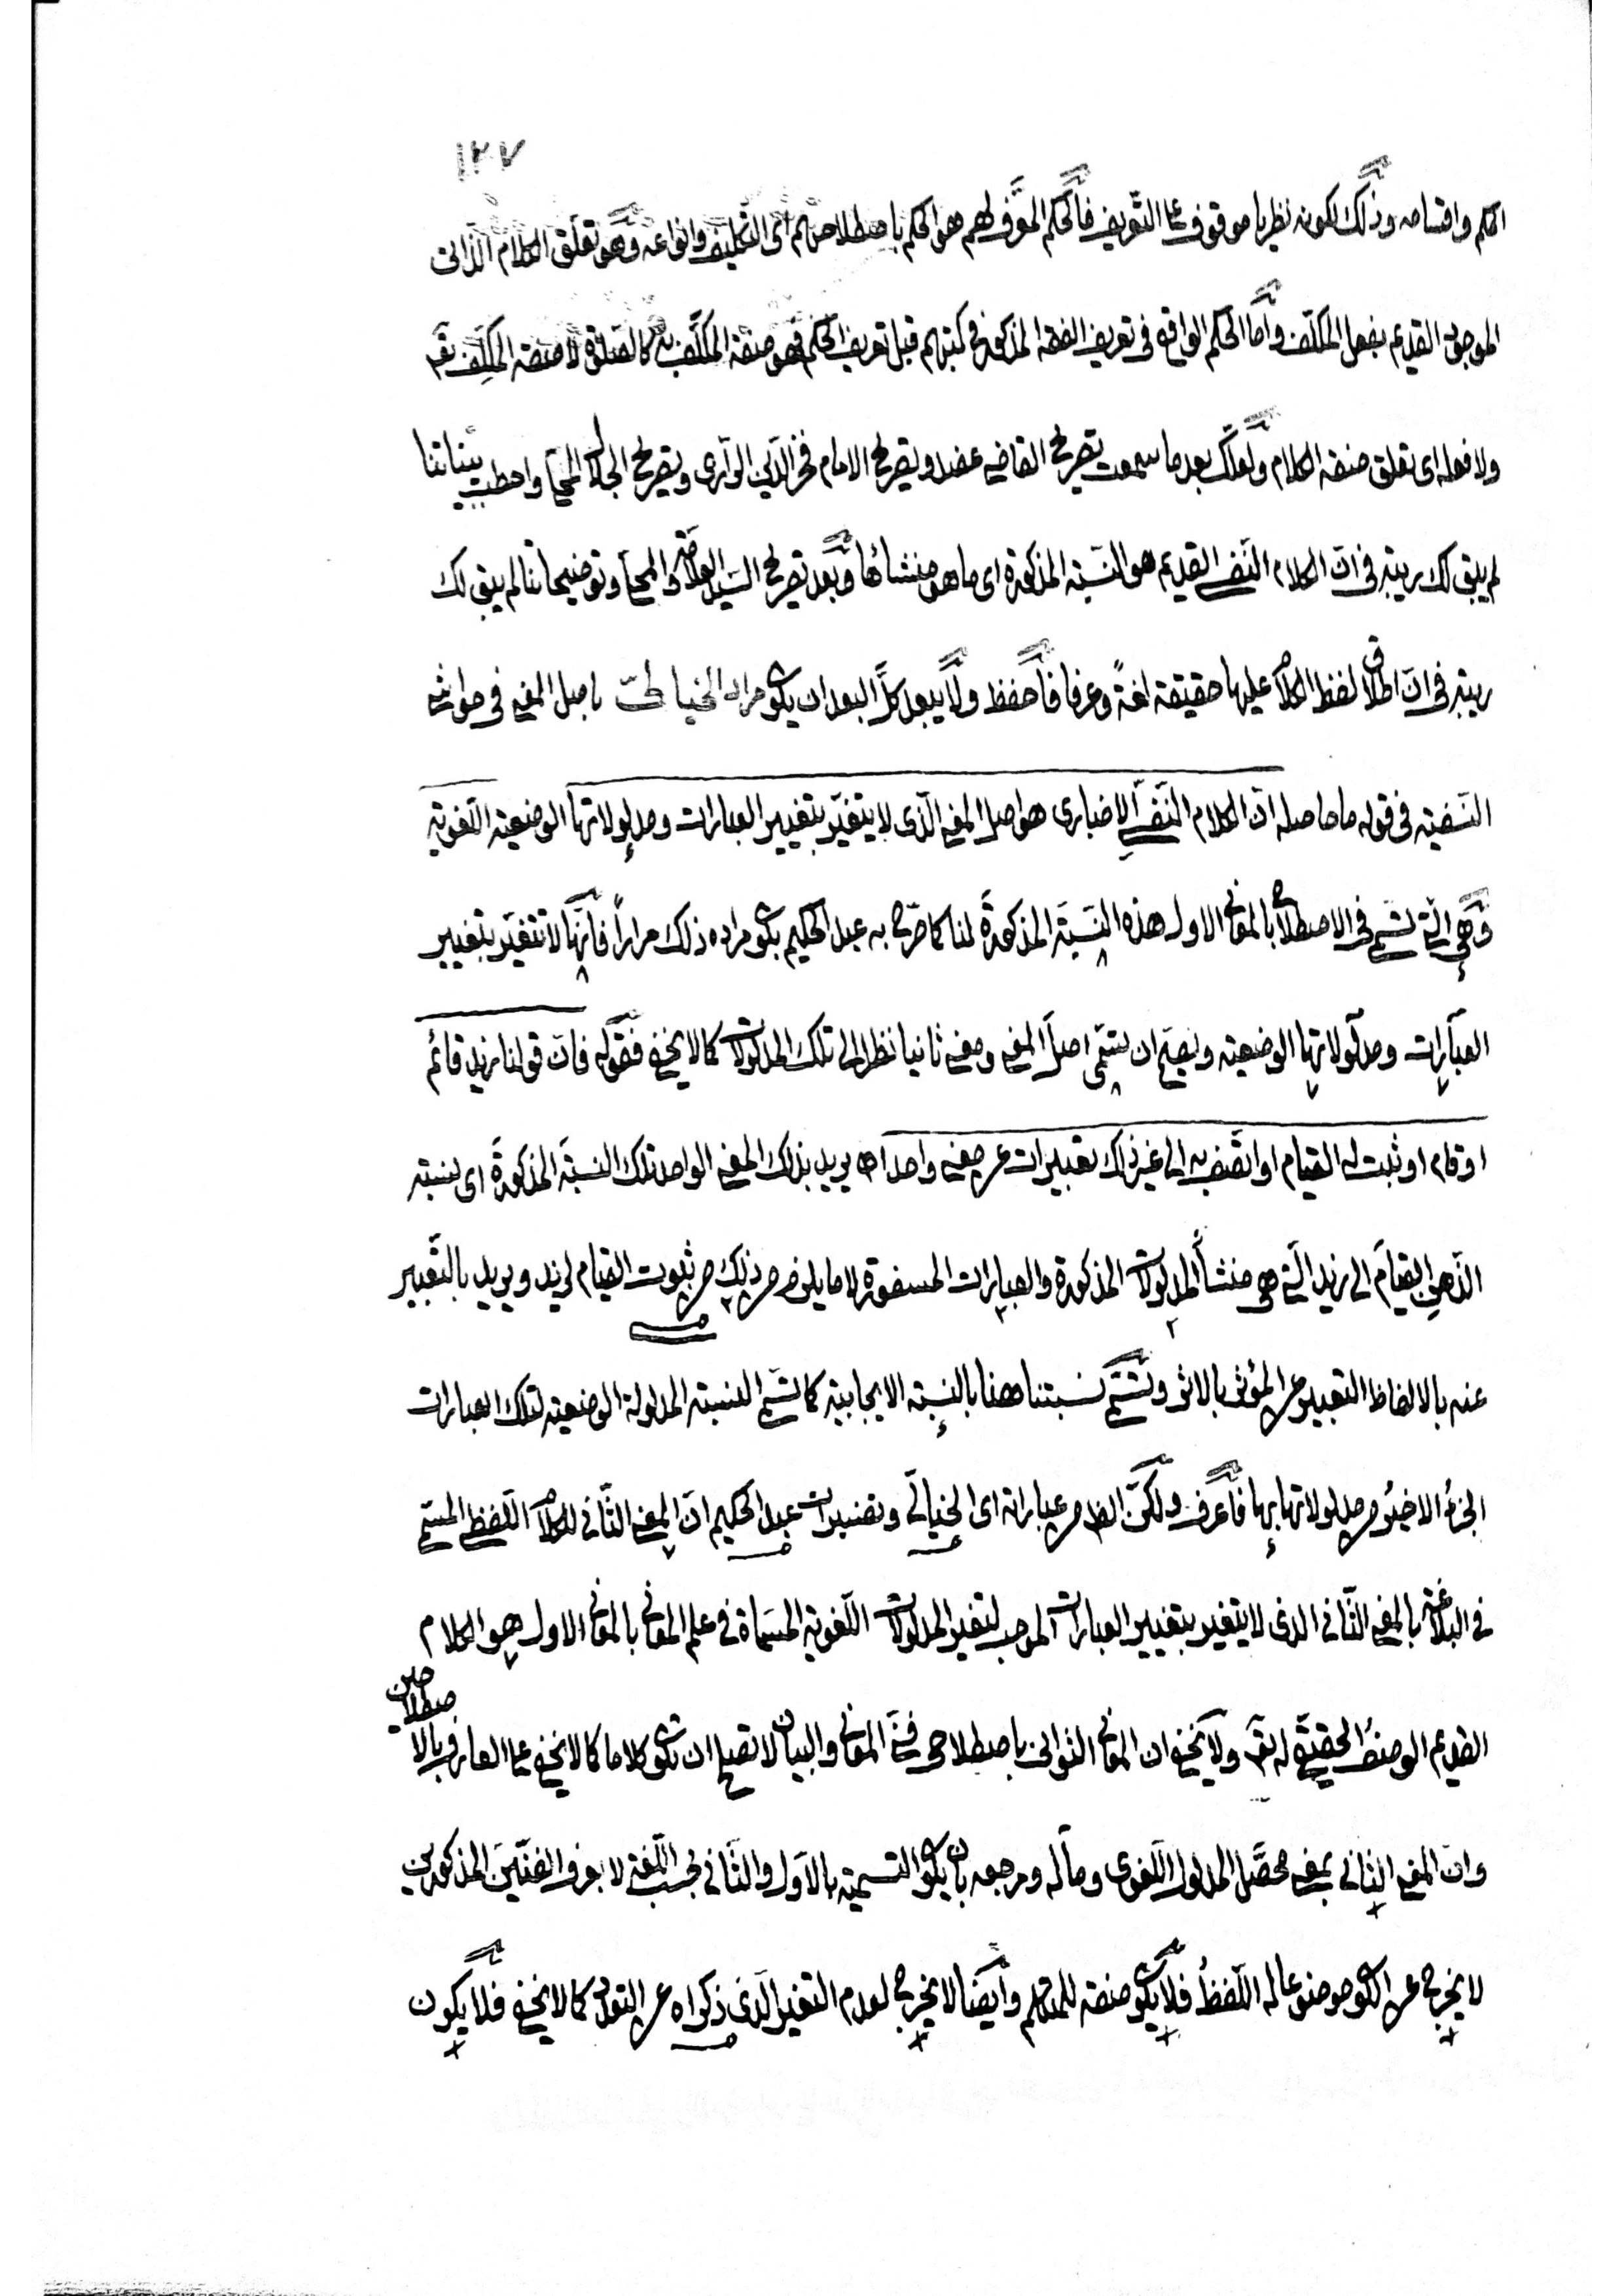 ١٢٧
الحكم واقسامه وذلك لكونه نظريا موقوف على التعريف فالحكم المعرف لهم هو الحكم باصطلاحهم اى التكليف وانواعه وهو تعلق الكلام الذاتى
الموجود القديم بفعل المكلف واما الحكم الواقع فى تعريف الفقه المذكور فى كتبهم قبل تعريف الحكم فهو صفة المكلف به كالصلوة لا صفة المكلف تع
ولا فعله اى تعلق صفة الكلام ولعلك بعد ما سمعت تصريح القاضى عضد وتصريح الامام فخر الدين الرازى وتصريح الجلال المحيا واحطت ببياناتنا
لم يبق لك ريبة فى ان الكلام النفسى القديم هو النسبة المذكورة اى ما هو منشاؤها وبعد تصريح السيد العلامة المحيا وتوضيحاتنا لم يبق لك
ريبة فى ان اطلاق لفظ الكلام عليها حقيقة لغةً وعرفا فاحفظ ولا يبعد كل البعد ان يكون مراد الخيالى باصل المعنى فى حواشى
النسفية فى قوله ما حاصله ان الكلام النفسى الاخبارى هو اصل المعنى الذى لا يتغير بتغيير العبارات ومدلولاتها الوضعية اللغوية
وهى التى تسمى فى الاصطلاح بالمعانى الاول هذه النسبة المذكورة لنا كما صرح به عبد الحكيم بكون مراده ذلك مراراً فانها لا تتغير بتغيير
العبارات ومدلولاتها الوضعية ويصح ان تسمى اصل المعنى ومعنى ثانيا نظرا الى تلك المدلولات كما لا يخفى فقوله فان قولنا زيد قائم
او قام او ثبت له القيام او اتصف به الى غير ذلك تعبيرات عن معنى واحد اه يريد بذلك المعنى الواحد تلك النسبة المذكورة اى نسبة
الذهن القيام الى زيد التى هى منشأ المدلولات المذكورة والعبارات المسفورة لا ما يلزم من ذلك من ثبوت القيام لزيد ويريد بالتعبير
عنه بالالفاظ التعبير عن المؤثر بالاثر وتسمى نسبتنا هنا بالنسبة الايجابية كما تسمى النسبة المدلولة الوضعية لتلك العبارات
الجزء الاخير من مدلولاتها بها فاعرف ولكن الظ من عباراته اى الخيالى وتفسيرات عبد الحكيم ان المعنى الثانى للكلام اللفظى المسمى
فى البلاغة بالمعنى الثانى الذى لا يتغير بتغيير العبارات الموجب لتغير المدلولات اللغوية المسماة فى علم المعانى بالمعانى الاول هو الكلام
القديم الوصف الحقيقى له تع ولا يخفى ان المعانى الثوانى باصطلاحى فنى المعانى والبيان لا تصلح ان تكون كلاما كما لا يخفى على العارف بالا
صطلاحين
وان المعنى الثانى بمعنى محصل المدلول اللغوى ومآله ومرجعه بان يكون التسمية بالاول والثانى بحسب اللغة لا بعرف الفنين المذكورين
لا يخرج عن الكون موضوعا له اللفظ فلا يكون صفة للمتكلم وايضا لا يخرج لعدم التغير الذى ذكراه عن التعدد كما لا يخفى فلا يكون